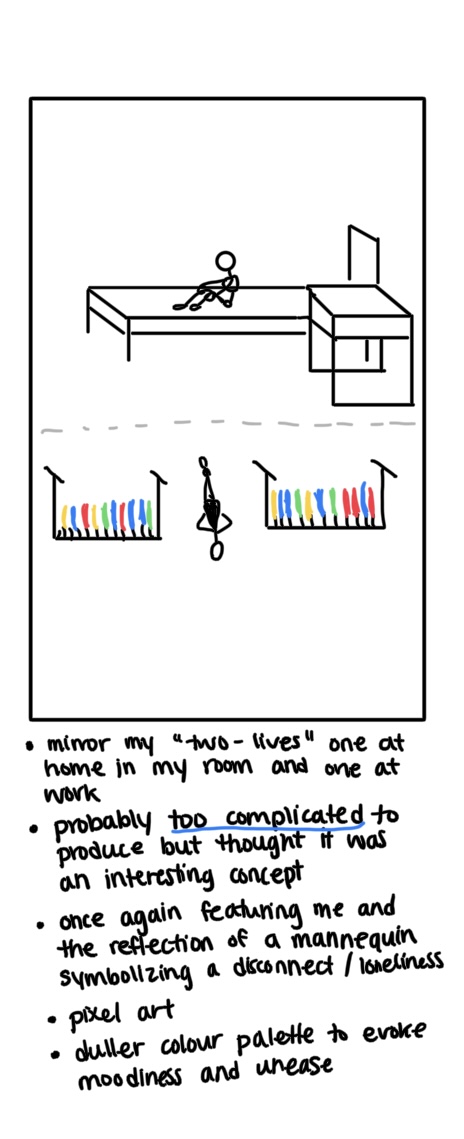 • mirror my "two-lives" one at
home in my room and one at
work
• probably too complicated to
produce but thought it was
an interesting concept
• once again featuring me and
the reflection of a mannequin
symbolizing a disconnect / loneliness
• pixel art
• duller colour palette to evoke
moodiness and unease